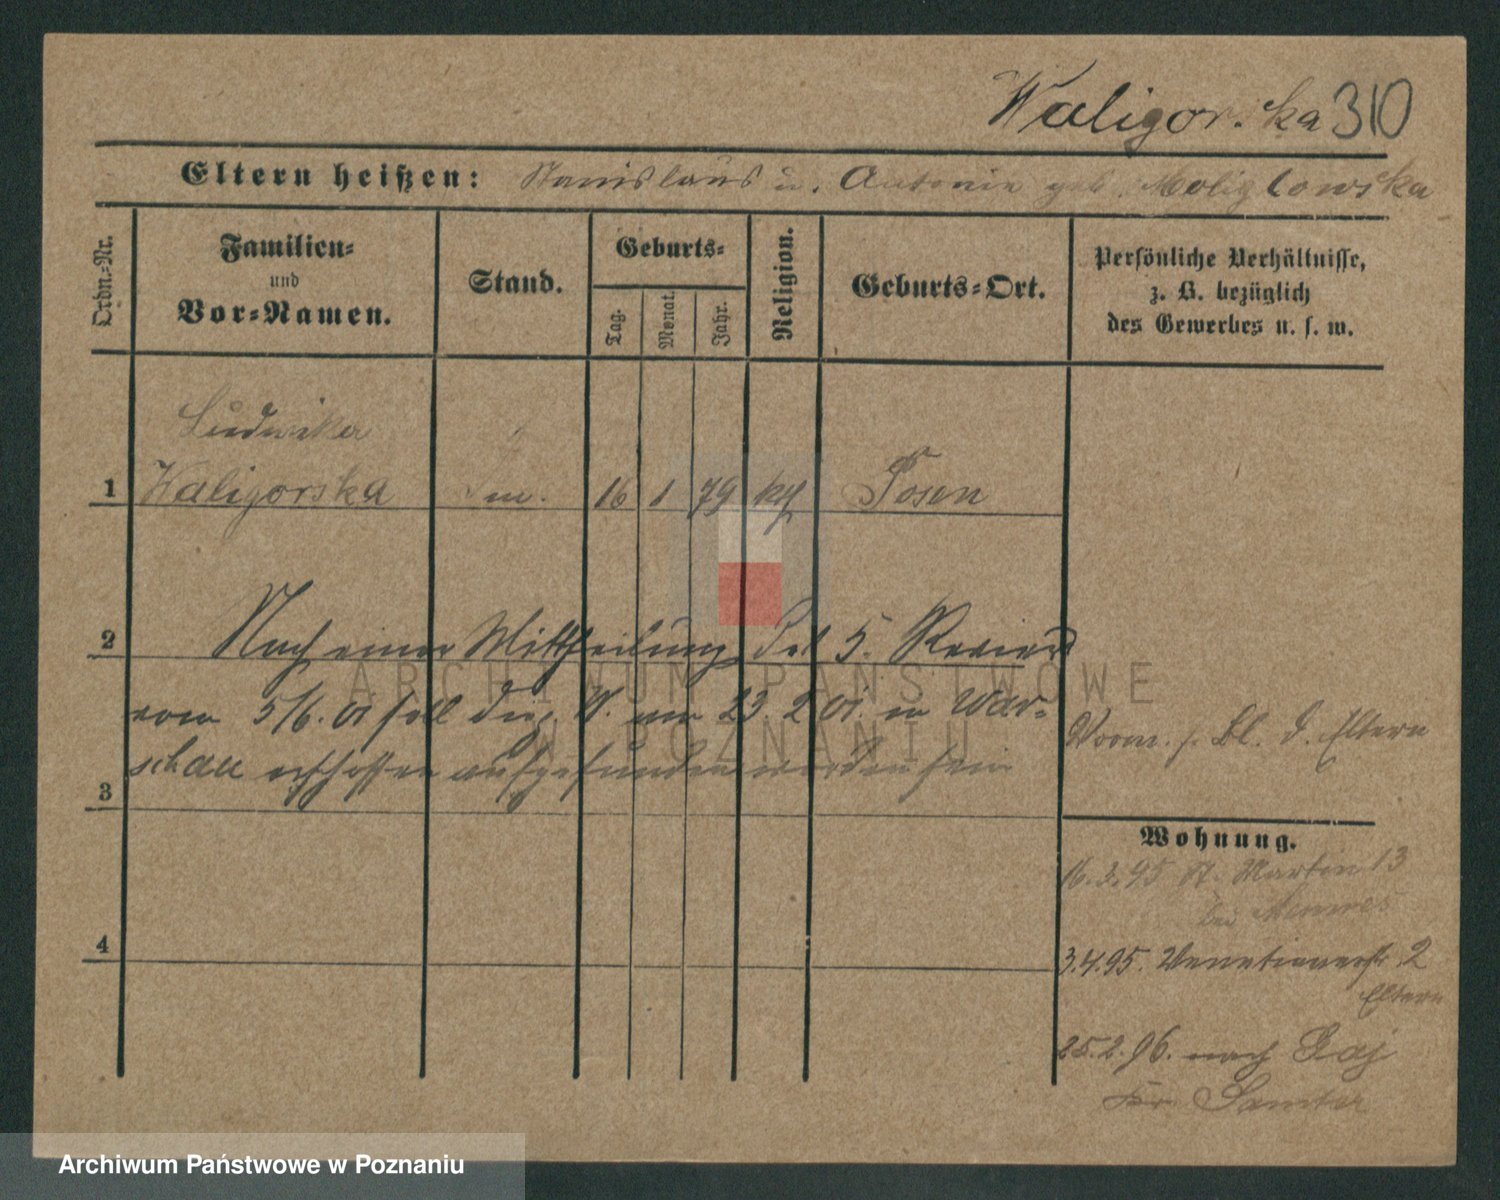 Waligorska 310
Eltern heißen: Stanislaus u. Antonie geb.
Ordn.-Nr.
Familien-
und
Vor-Namen.
Stand.
Geburts-
Tag.
Monat.
Jahr.
Religion.
Geburts-Ort.
Persönliche Verhältnisse,
z. B. bezüglich
des Gewerbes u. s. w.
Ludwika
1 Waligorska 16 1 79 kth Posen
2 Nach einer Mittheilung des 5. Reviers
vom 5/6. 01 soll die p. W. am 23. 2. 01. in War-
schau erschossen aufgefunden worden sein
3
4
Vorm. s. Bl. d. Eltern
Wohnung.
16.3.95 St. Martin 13
bei
3.4.95. Venetianerstr. 2
Eltern
25.2.96. nach Gaj
Kr. Samter
ARCHIWUM PAŃSTWOWE
W POZNANIU
Archiwum Państwowe w Poznaniu